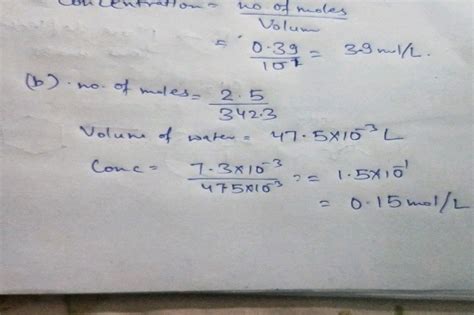 Concentration = no of moles / Volum
= 0.39 / 10⁻¹ = 3.9 ml/L.
(b) . no. of moles = 2.5 / 342.3
Volume of water = 47.5×10⁻³ L
Conc = 7.3×10⁻³ / 475×10⁻³ = = 1.5×10⁻¹
= 0.15 mol/L